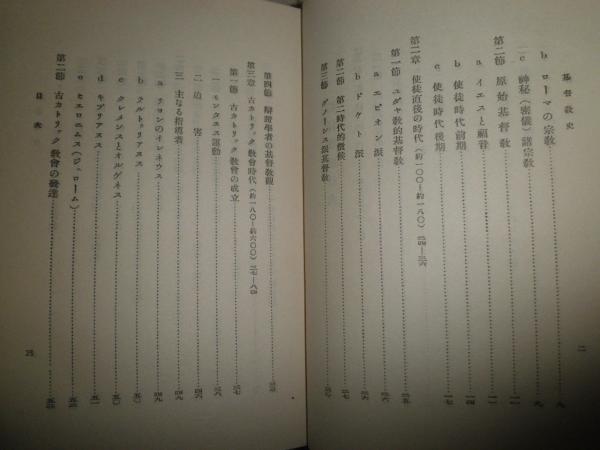 基督教史
b ローマの宗教……九
c 神秘(密儀)諸宗教……九
第二節 原始基督教……一一
a イエスと福音……一一
b 使徒時代前期……一四
c 使徒時代後期……一七
第二章 使徒直後の時代(約一〇〇—約一八〇)
第一節 ユダヤ教的基督教……二五
a エビオン派……二五
b ドケト派……二六
第二節 第二時代的徴候……二七
第三節 グノーシス派基督教
二
第四節 辯證學者の基督教觀
第三章 古カトリック教會時代(約一八〇—約六〇〇) 三七—八四
第一節 古カトリック教會の成立……三七
一 モンタヌス運動……三八
二 迫害……四六
三 主なる指導者……四九
a リヨンのイレネウス……四九
b テルトゥリアヌス……
c クレメンスとオルゲネス……五〇
d キプリアヌス……五一
e ヒエロニムス(ジェローム)……五二
第二節 古カトリック教會の發達……五三
目次
25